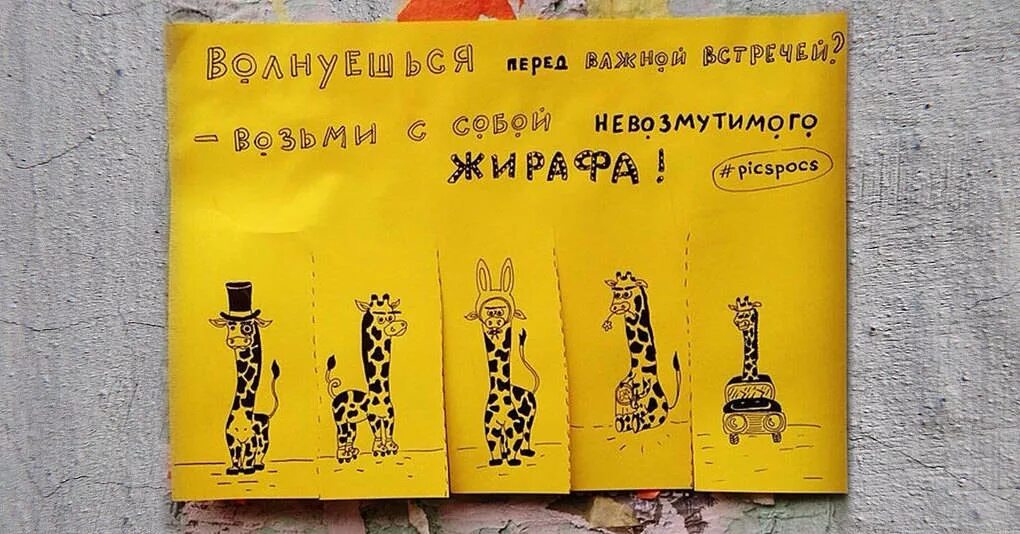 ВОЛНУЕШЬСЯ ПЕРЕД ВАЖНОЙ ВСТРЕЧЕЙ?
– ВОЗЬМИ С СОБОЙ НЕВОЗМУТИМОГО
ЖИРАФА!
#picspocs